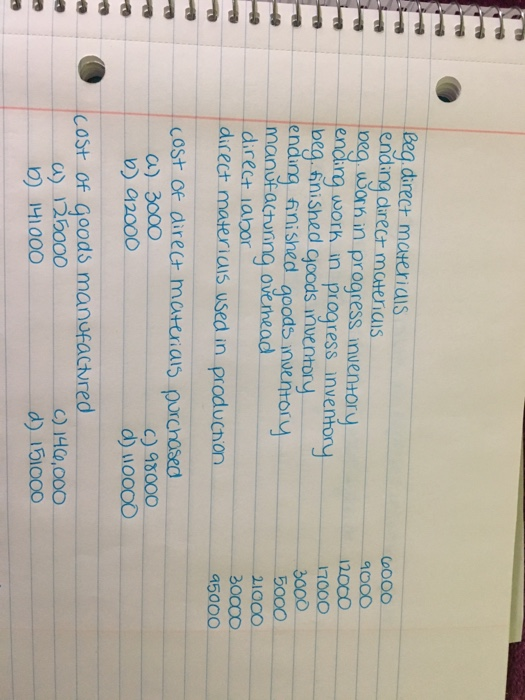 Beg. direct materials 6000
ending direct materials 9000
beg work in progress inventory 12000
ending work in progress inventory 17000
beg. finished goods inventory 3000
ending finished goods inventory 5000
manufacturing overhead 21000
direct labor 30000
direct materials used in production 95000
cost of direct materials purchased
a) 3000 c) 98000
b) 92000 d) 110000
cost of goods manufactured
a) 125000 c) 146,000
b) 141,000 d) 151000